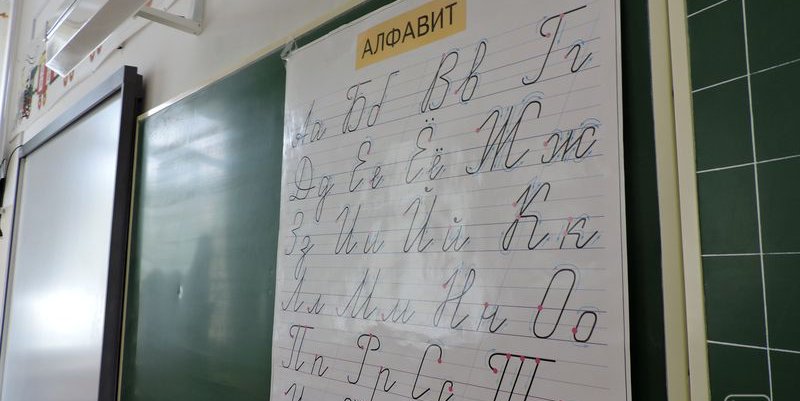 АЛФАВИТ
Аа Бб Вв Гг
Дд Ее Ёё Жж
Зз Ии Йй Кк
Лл Мм Нн Оо
Пп Рр Сс Т